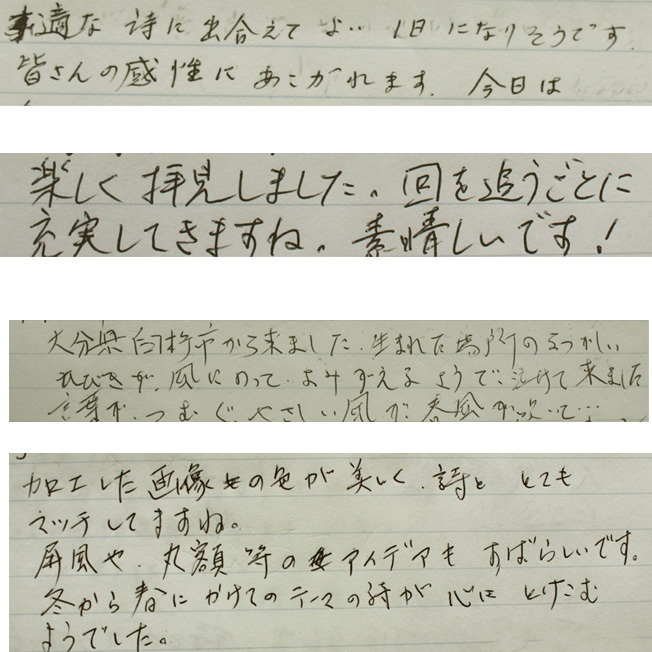 適な 詩に 出合えて よい 1日 になりそうです.
皆さんの感性に あこがれます. 今日は
楽しく 拝見しました。回を追うごとに
充実してきますね。素晴しいです!
大分県臼杵市から来ました. 生まれた場所のなつかしい
ひびきが、風にのって、よみがえるようで 泣けて 来ました
言葉が、つむぐ、やさしい風が 春風が吹いて…
加工した画像の色が 美しく、詩と とても
マッチしてますね。
屏風や、丸額等のアイデアも すばらしいです。
冬から春に かけてのテーマの詩が 心に とけこむ
ようでした。